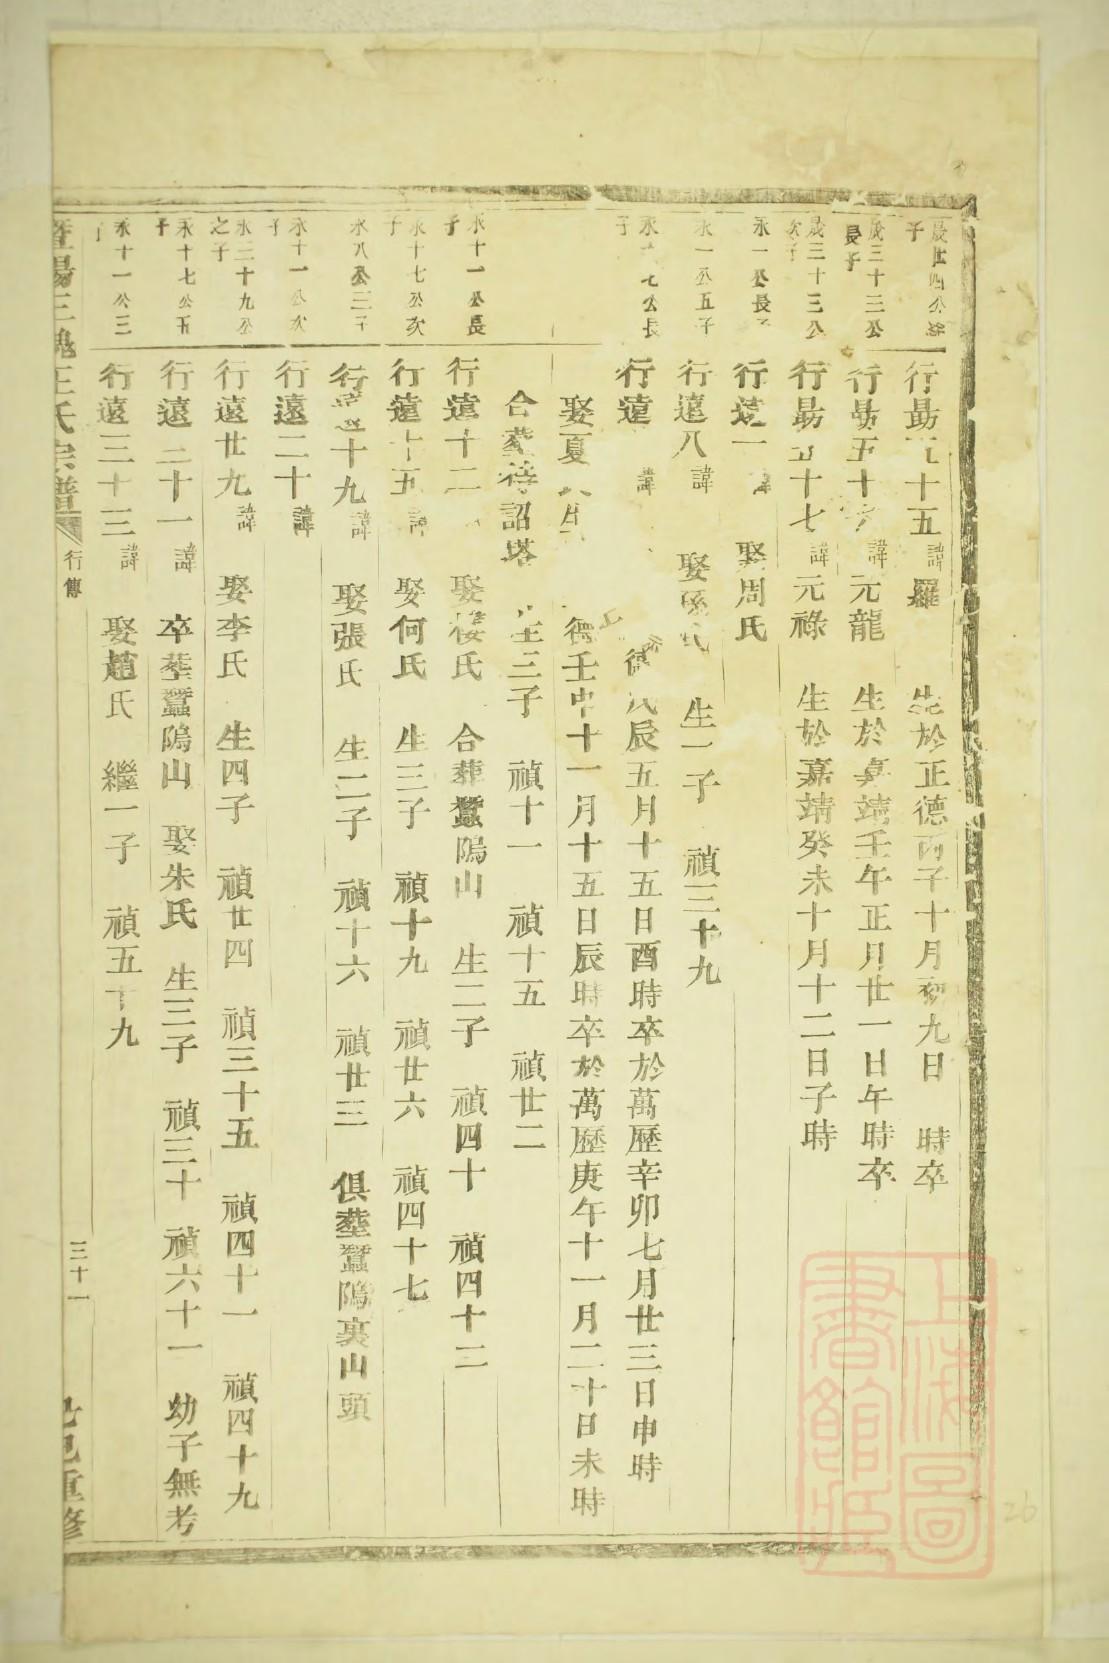 子
行勗 十五 諱羅 生於正德丙子十月初九日 時卒
晟三十三公
長子
行勗五十 諱元龍 生於嘉靖壬午正月廿一日午時卒
晟三十三公
次子
行勗五十七 諱元祿 生於嘉靖癸未十月十二日子時
永一公長子
行遠一 娶周氏
永一公五子
行遠八 諱 娶孫氏 生一子 禎三十九
永 七公長
子
行遠 諱 德戊辰五月十五日酉時卒於萬歷辛卯七月廿三日申時
娶夏 德壬申十一月十五日辰時卒於萬歷庚午十一月二十日未時
合葬待詔塔 生三子 禎十一 禎十五 禎廿二
永十一公長
子
行遠十二 娶樓氏 合葬蠶隖山 生二子 禎四十 禎四十二
永十七公次
子
行遠十五 諱 娶何氏 生三子 禎十九 禎廿六 禎四十七
永八公三子
行遠十九 諱 娶張氏 生二子 禎十六 禎廿三 俱塟蠶隖裏山頭
永十一公次
子
行遠二十 諱
永二十九公
之子
行遠廿九 諱 娶李氏 生四子 禎廿四 禎三十五 禎四十一 禎四十九
永十七公五
子
行遠二十一 諱 卒塟蠶隖山 娶朱氏 生三子 禎三十 禎六十一 幼子無考
永十一公三
行遠三十三 諱 娶趙氏 繼一子 禎五十九
暨陽王氏宗譜 行傳 三十一 己巳重修
上海圖
書館藏
26